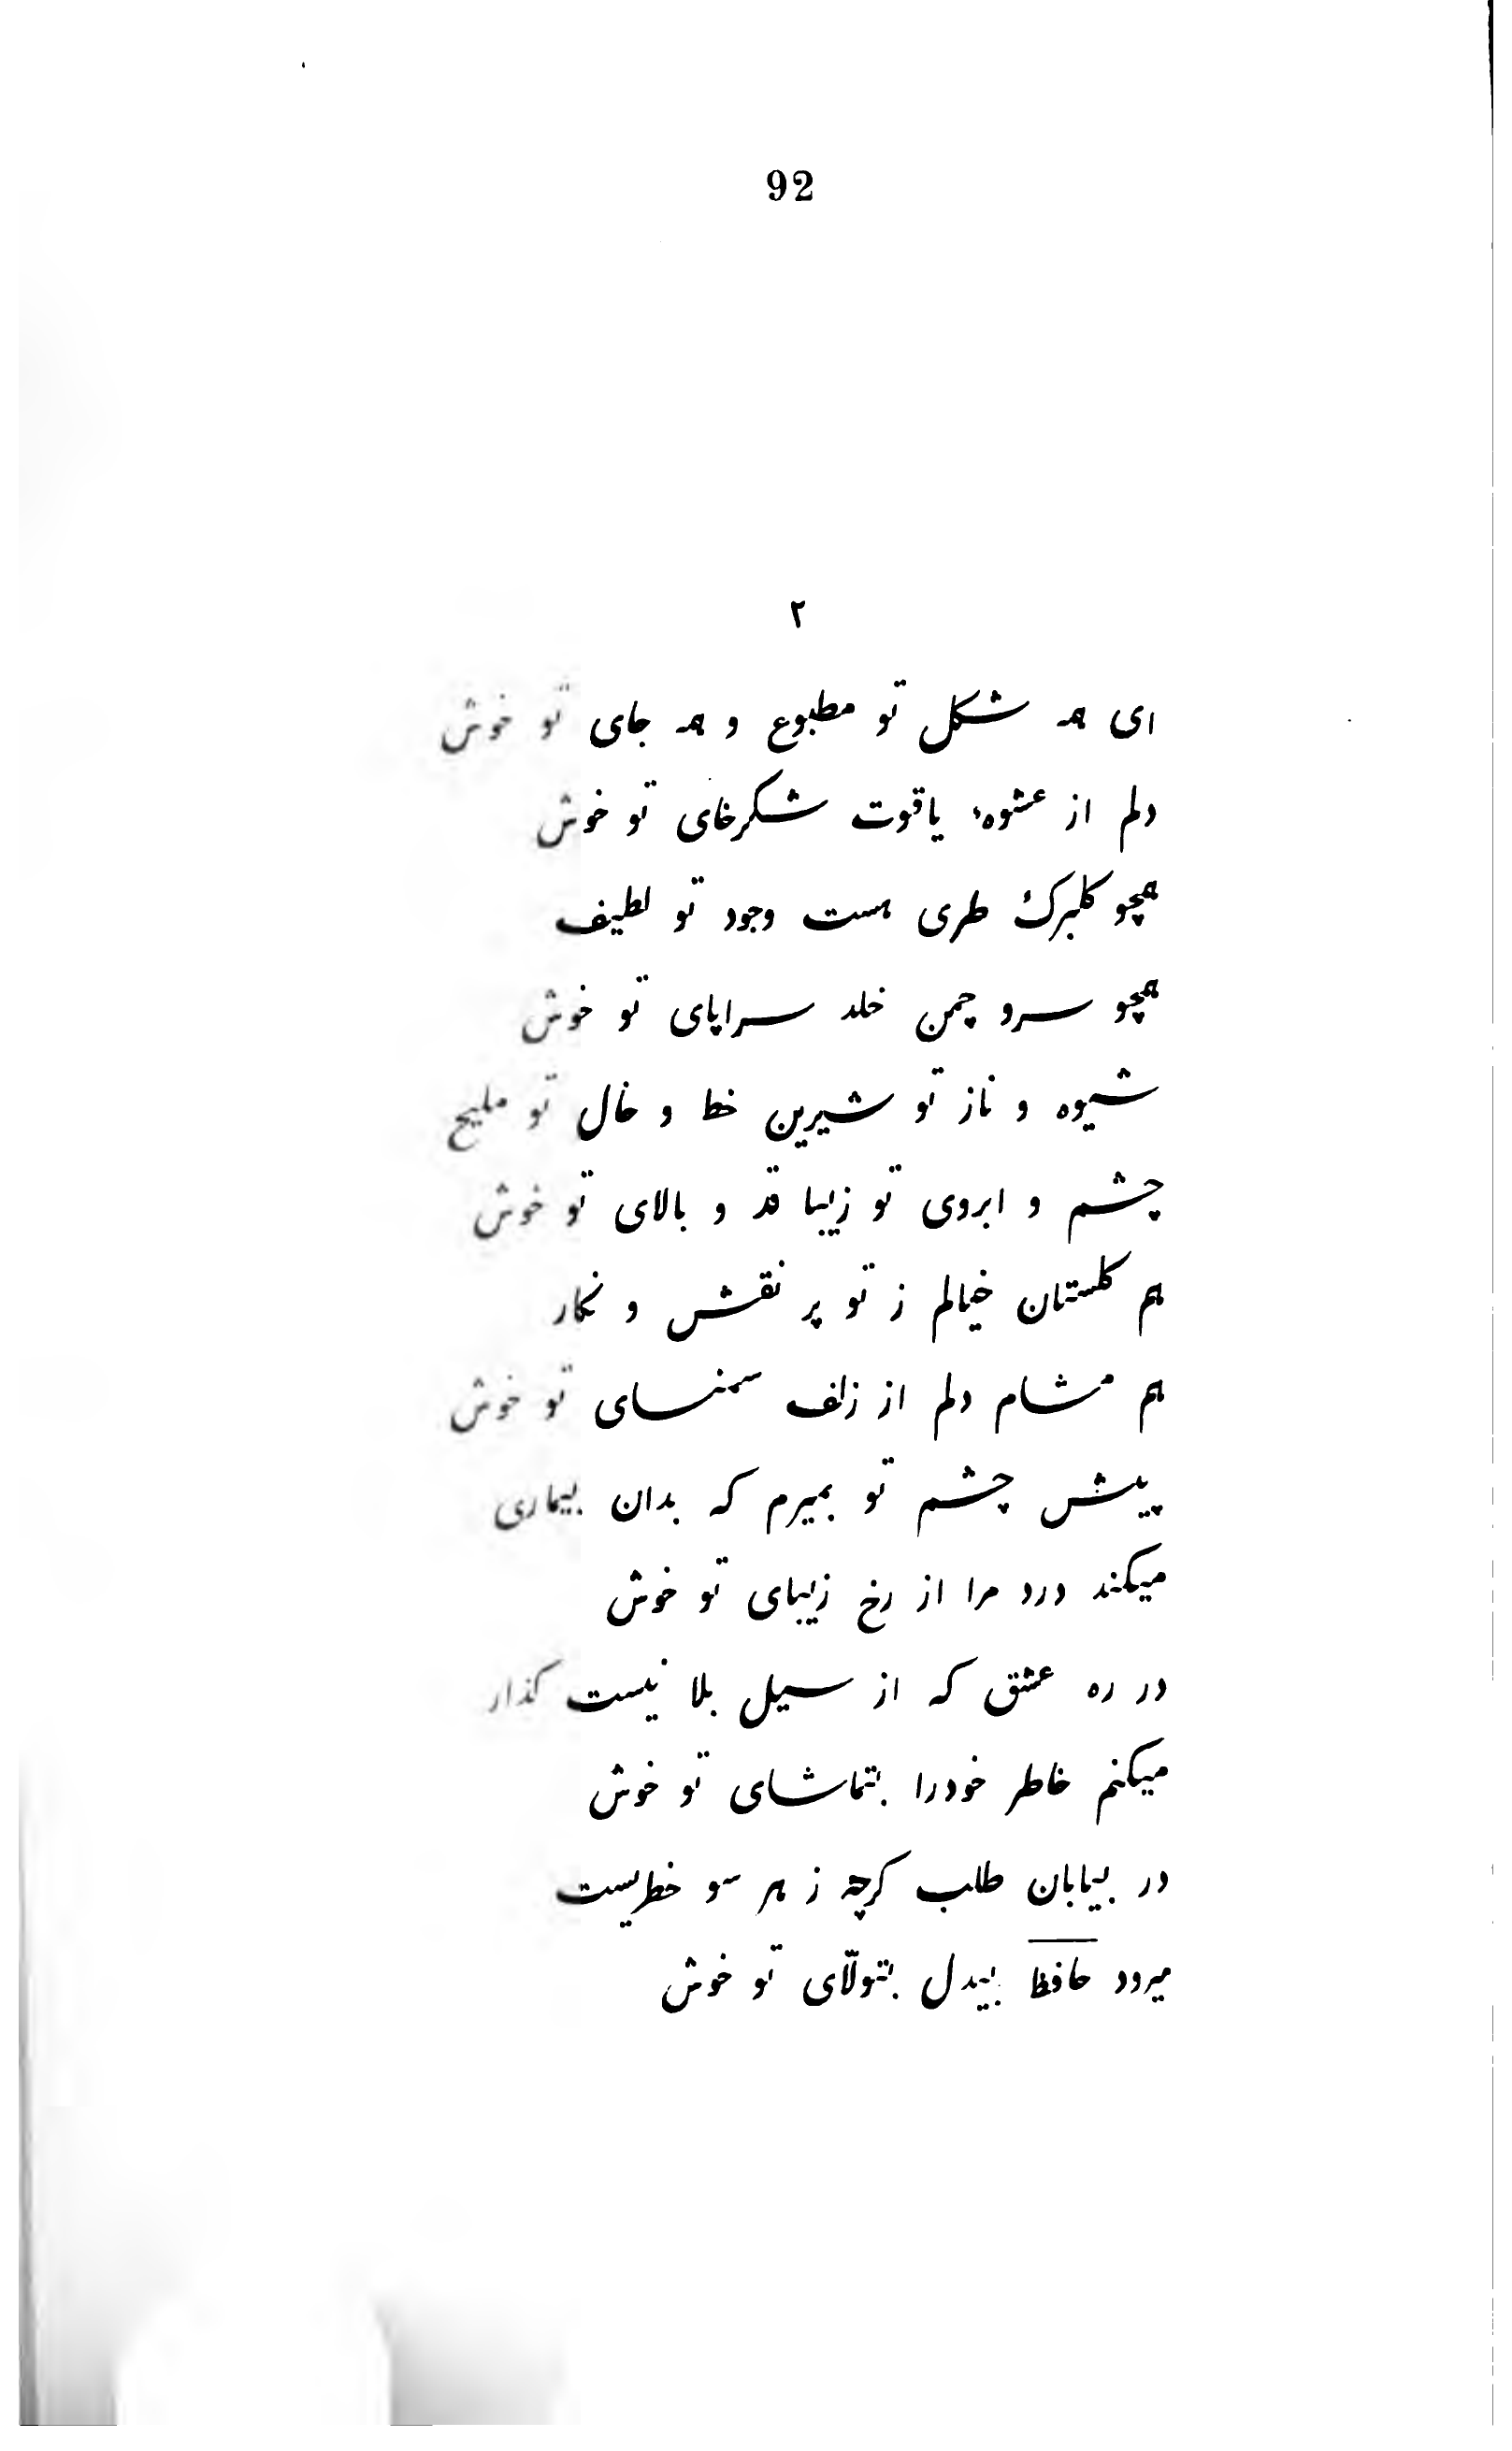 92
٢
ای همه شکل تو مطبوع و همه جای تو خوش
دلم از عشوهٔ یاقوت شکرخای تو خوش
همچو کلبرك طری هست وجود تو لطیف
همچو سرو چمن خلد سراپای تو خوش
شیوه و ناز تو شیرین خط و خال تو ملیح
چشم و ابروی تو زیبا قد و بالای تو خوش
هم کلستان خیالم ز تو پر نقش و نکار
هم مشام دلم از زلف سمنسای تو خوش
پیش چشم تو بمیرم که بدان بیماری
میکند درد مرا از رخ زیبای تو خوش
در ره عشق که از سیل بلا نیست کذار
میکنم خاطر خودرا بتماشای تو خوش
در بیابان طلب کرچه ز هر سو خطریست
میرود حافظ بیدل بتولّای تو خوش